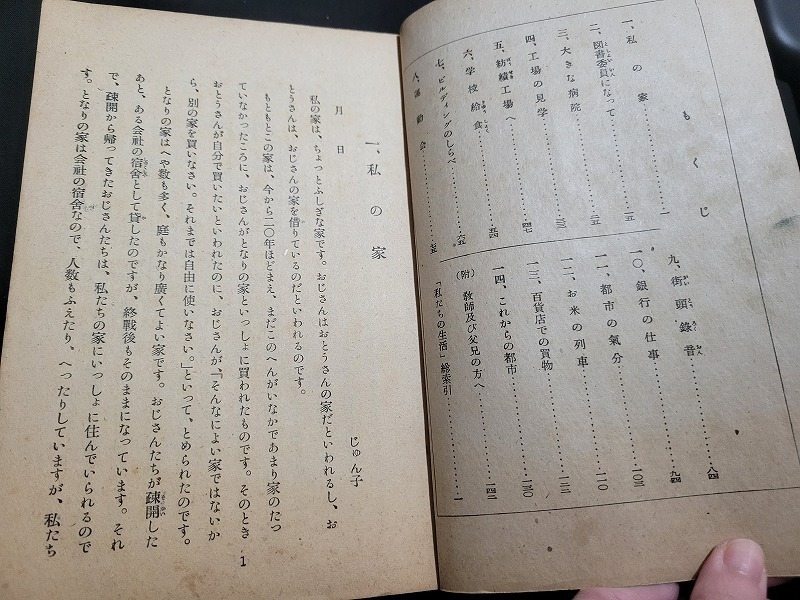 もくじ
一、私の家……一
二、図書委員になって……一五
三、大きな病院……二五
四、工場の見学……三三
五、紡績工場へ……四七
六、学校給食……五四
七、ビルディングのしらべ……六五
八、運動会……七五
九、街頭録音……八四
一〇、銀行の仕事……九四
一一、都市の氣分……一〇三
一二、お米の列車……一一〇
一三、百貨店での買物……一二三
一四、これからの都市……一三〇
(附) 敎師及び父兄の方へ……一四二
「私たちの生活」総索引……一
一、私の家
月 日 じゅん子
私の家は、ちょっとふしぎな家です。おじさんはおとうさんの家だといわれるし、お
とうさんは、おじさんの家を借りているのだといわれるのです。
もともとこの家は、今から二〇年ほどまえ、まだこのへんがいなかであまり家のたっ
ていなかったころに、おじさんがとなりの家といっしょに買われたものです。そのとき
おとうさんが自分で買いたいといわれたのに、おじさんが、「そんなによい家ではないか
ら、別の家を買いなさい。それまでは自由に使いなさい。」といって、とめられたのです。
となりの家はへや数も多く、庭もかなり廣くてよい家です。おじさんたちが疎開した
あと、ある会社の宿舍として貸したのですが、終戰後もそのままになっています。それ
で、疎開から帰ってきたおじさんたちは、私たちの家にいっしょに住んでいられるので
す。となりの家は会社の宿舍なので、人数もふえたり、へったりしていますが、私たち
1